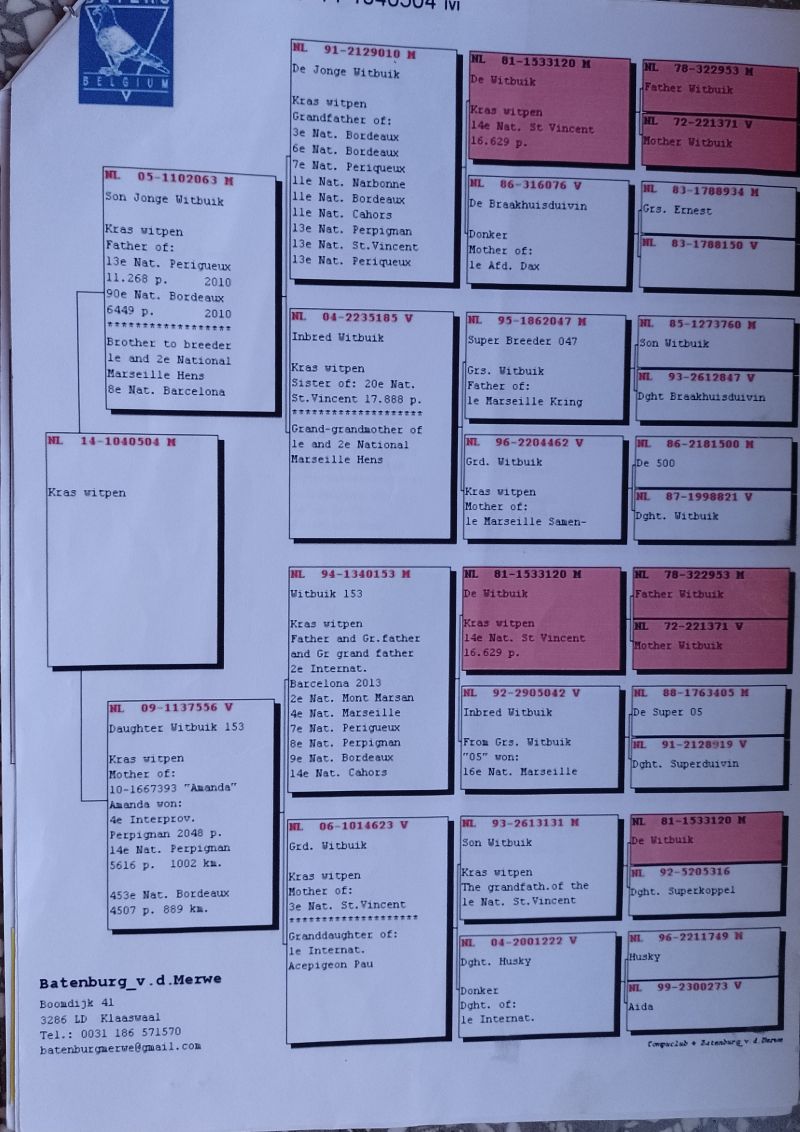 BELGIUM
NL 14-1040504 M
Kras witpen
NL 05-1102063 M
Son Jonge Witbuik
Kras witpen
Father of:
13e Nat. Perigueux
11.268 p. 2010
90e Nat. Bordeaux
6449 p. 2010
******************
Brother to breeder
1e and 2e National
Marseille Hens
8e Nat. Barcelona
NL 09-1137556 V
Daughter Witbuik 153
Kras witpen
Mother of:
10-1667393 "Amanda"
Amanda won:
4e Interprov.
Perpignan 2048 p.
14e Nat. Perpignan
5616 p. 1002 km.
453e Nat. Bordeaux
4507 p. 889 km.
NL 91-2129010 M
De Jonge Witbuik
Kras witpen
Grandfather of:
3e Nat. Bordeaux
6e Nat. Bordeaux
7e Nat. Periqueux
11e Nat. Narbonne
11e Nat. Bordeaux
11e Nat. Cahors
13e Nat. Perpignan
13e Nat. St.Vincent
13e Nat. Periqueux
NL 04-2235185 V
Inbred Witbuik
Kras witpen
Sister of: 20e Nat.
St.Vincent 17.888 p.
*******************
Grand-grandmother of
1e and 2e National
Marseille Hens
NL 94-1340153 M
Witbuik 153
Kras witpen
Father and Gr.father
and Gr grand father
2e Internat.
Barcelona 2013
2e Nat. Mont Marsan
4e Nat. Marseille
7e Nat. Perigueux
8e Nat. Perpignan
9e Nat. Bordeaux
14e Nat. Cahors
NL 06-1014623 V
Grd. Witbuik
Kras witpen
Mother of:
3e Nat. St.Vincent
*******************
Granddaughter of:
1e Internat.
Acepigeon Pau
NL 81-1533120 M
De Witbuik
Kras witpen
14e Nat. St Vincent
16.629 p.
NL 86-316076 V
De Braakhuisduivin
Donker
Mother of:
1e Afd. Dax
NL 95-1862047 M
Super Breeder 047
Grs. Witbuik
Father of:
1e Marseille Kring
NL 96-2204462 V
Grd. Witbuik
Kras witpen
Mother of:
1e Marseille Samen-
NL 81-1533120 M
De Witbuik
Kras witpen
14e Nat. St Vincent
16.629 p.
NL 92-2905042 V
Inbred Witbuik
From Grs. Witbuik
"05" won:
16e Nat. Marseille
NL 93-2613131 M
Son Witbuik
Kras witpen
The grandfath.of the
1e Nat. St.Vincent
NL 04-2001222 V
Dght. Husky
Donker
Dght. of:
1e Internat.
NL 78-322953 M
Father Witbuik
NL 72-221371 V
Mother Witbuik
NL 83-1788934 M
Grs. Ernest
NL 83-1788150 V
NL 85-1273760 M
Son Witbuik
NL 93-2612847 V
Dght Braakhuisduivin
NL 86-2181500 M
De 500
NL 87-1998821 V
Dght. Witbuik
NL 78-322953 M
Father Witbuik
NL 72-221371 V
Mother Witbuik
NL 88-1763405 M
De Super 05
NL 91-2128919 V
Dght. Superduivin
NL 81-1533120 M
De Witbuik
NL 92-5205316
Dght. Superkoppel
NL 96-2211749 M
Husky
NL 99-2300273 V
Aida
Batenburg_v.d.Merwe
Boomdijk 41
3286 LD Klaaswaal
Tel.: 0031 186 571570
batenburgmerwe@gmail.com
Compuclub + Batenburg_v.d.Merwe